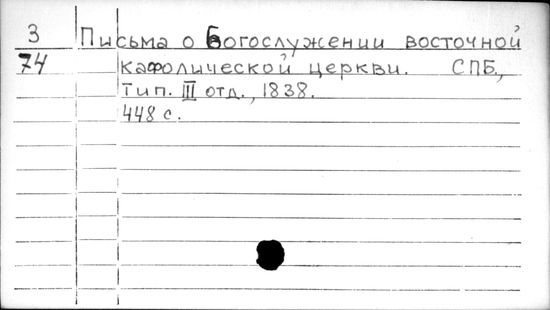 3 Письма о Богослужении восточной
74 кафолической церкви. СПБ.,
Тип. III отд., 1838.
448 с.